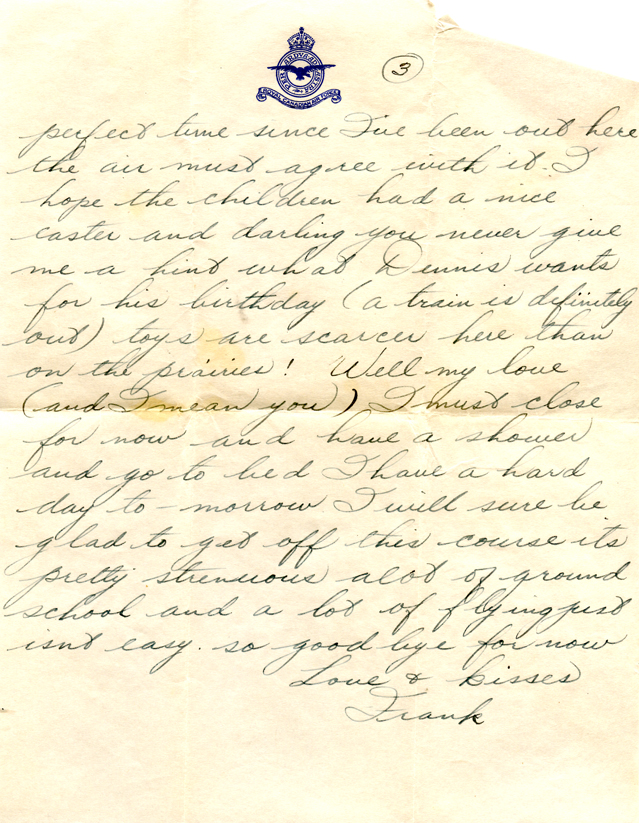 PER ARDUA AD ASTRA
ROYAL CANADIAN AIR FORCE
3
perfect time since I've been out here
the air must agree with it. I
hope the children had a nice
easter and darling you never give
me a hint what Dennis wants
for his birthday (a train is definitely
out) toys are scarcer here than
on the prairies! Well my love
(and I mean you) I must close
for now and have a shower
and go to bed I have a hard
day to-morrow I will sure be
glad to get off this course its
pretty strenuous alot of ground
school and a lot of flying just
isnt easy. so good bye for now
Love & kisses
Frank